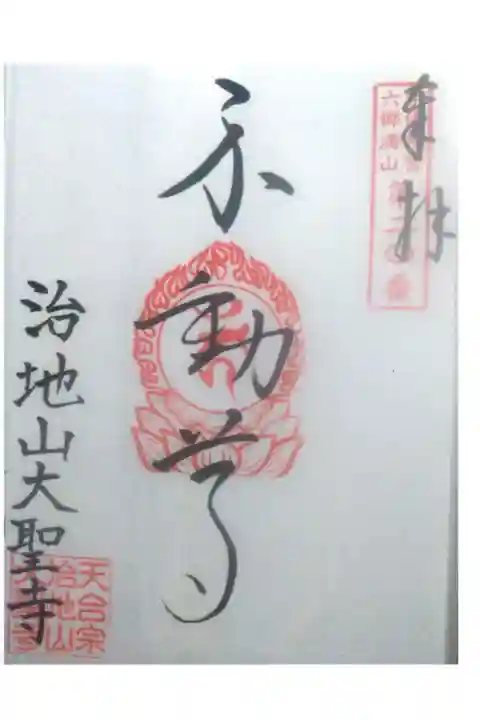 奉拝
六郷満山
不動尊
治地山大聖寺
天台宗
治地山
大聖寺